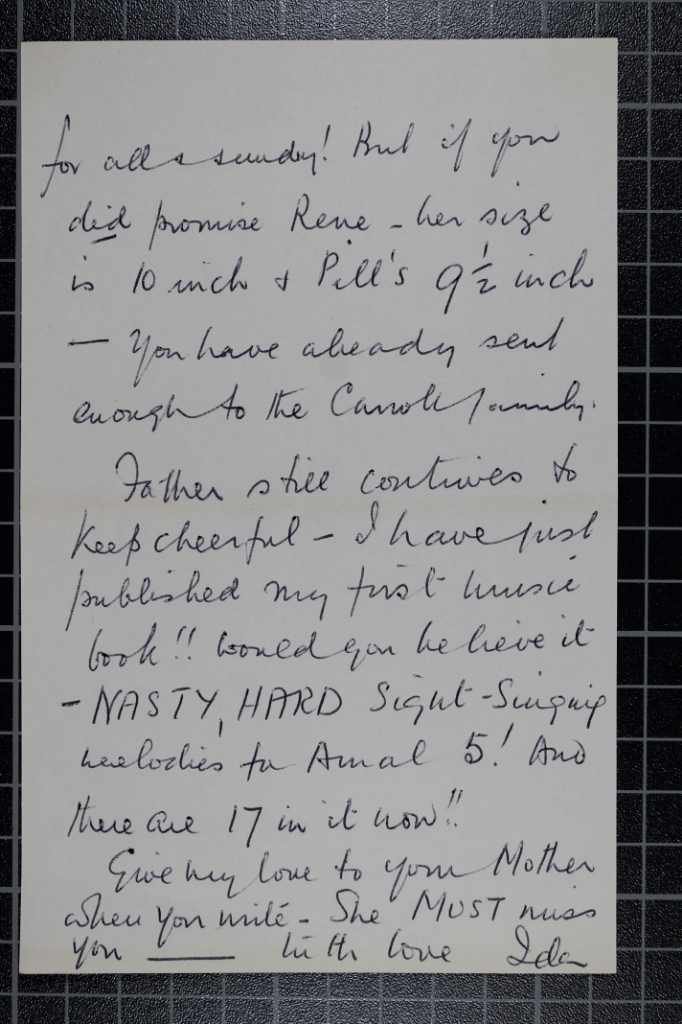 for all & sunday! But if you
did promise Rene - her size
is 10 inch & Pill's 9 1/2 inch
— You have already sent
enough to the Carroll family.
Father still continues to
keep cheerful - I have just
published my first music
book!! Would you believe it
- NASTY, HARD Sight-Singing
melodies for Aural 5! And
there are 17 in it now!!
Give my love to your Mother
when you write - She MUST miss
you —— With love Ida